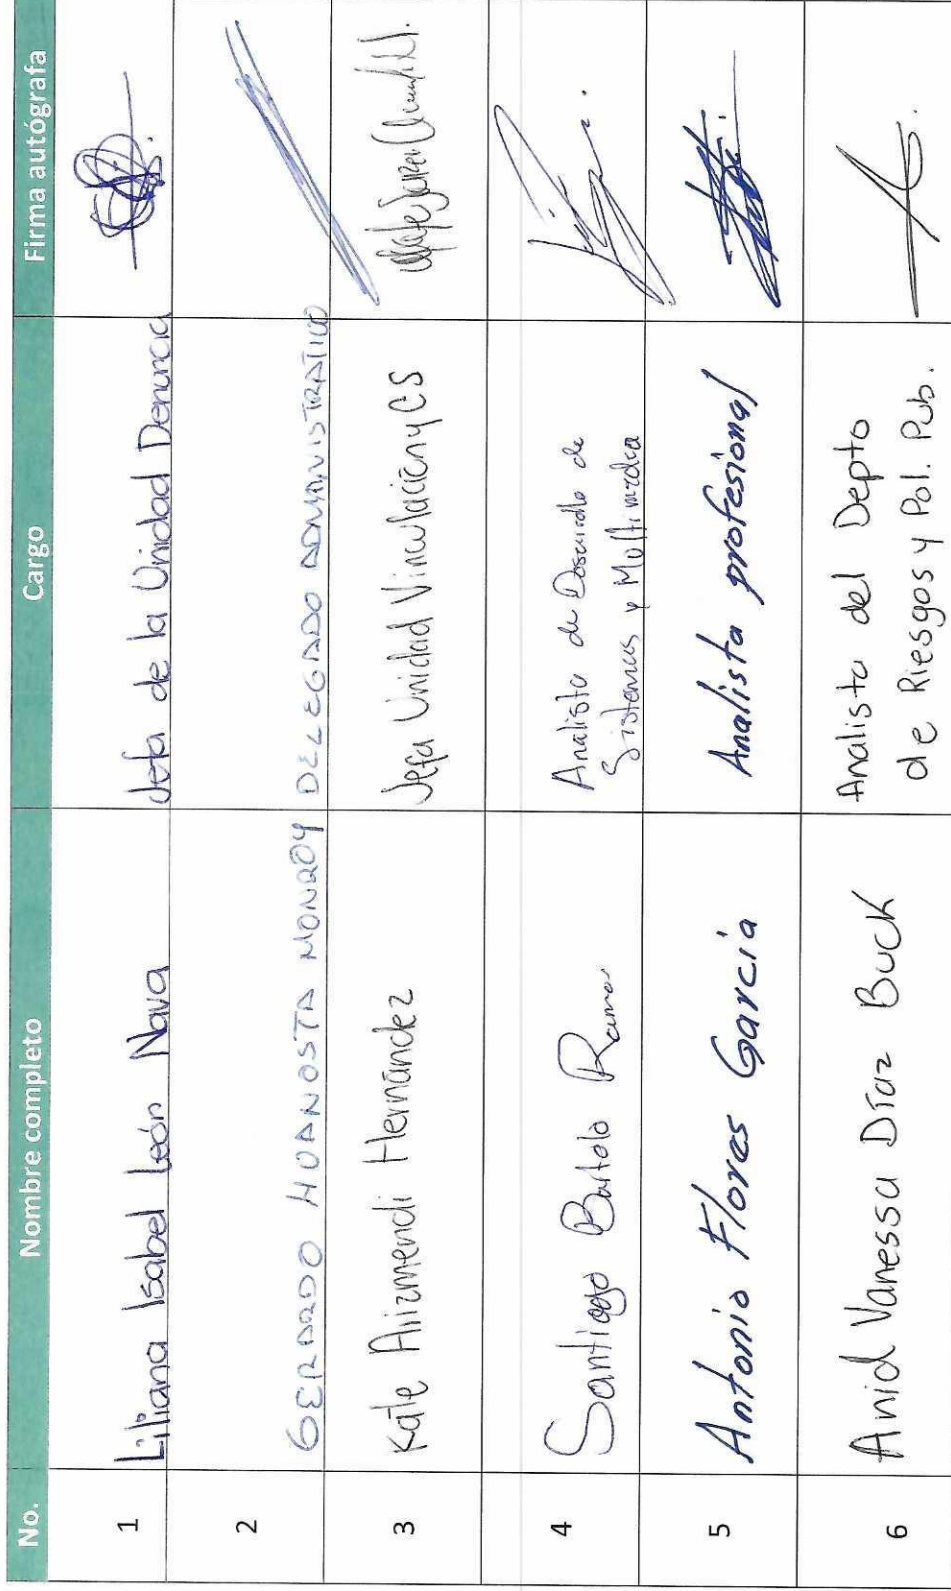 No. Nombre completo Cargo Firma autógrafa
1 Liliana Isabel León Nava Jefa de la Unidad Denuncia
2 GERARDO HUANOSTA MONROY DELEGADO ADMINISTRATIVO
3 Kate Arizmendi Hernández Jefa Unidad Vinculación y CS
4 Santiago Bartolo Ramos Analista de Desarrollo de
Sistemas y Multimedia
5 Antonio Flores García Analista profesional
6 Anid Vanessa Díaz Buck Analista del Depto
de Riesgos y Pol. Pub.